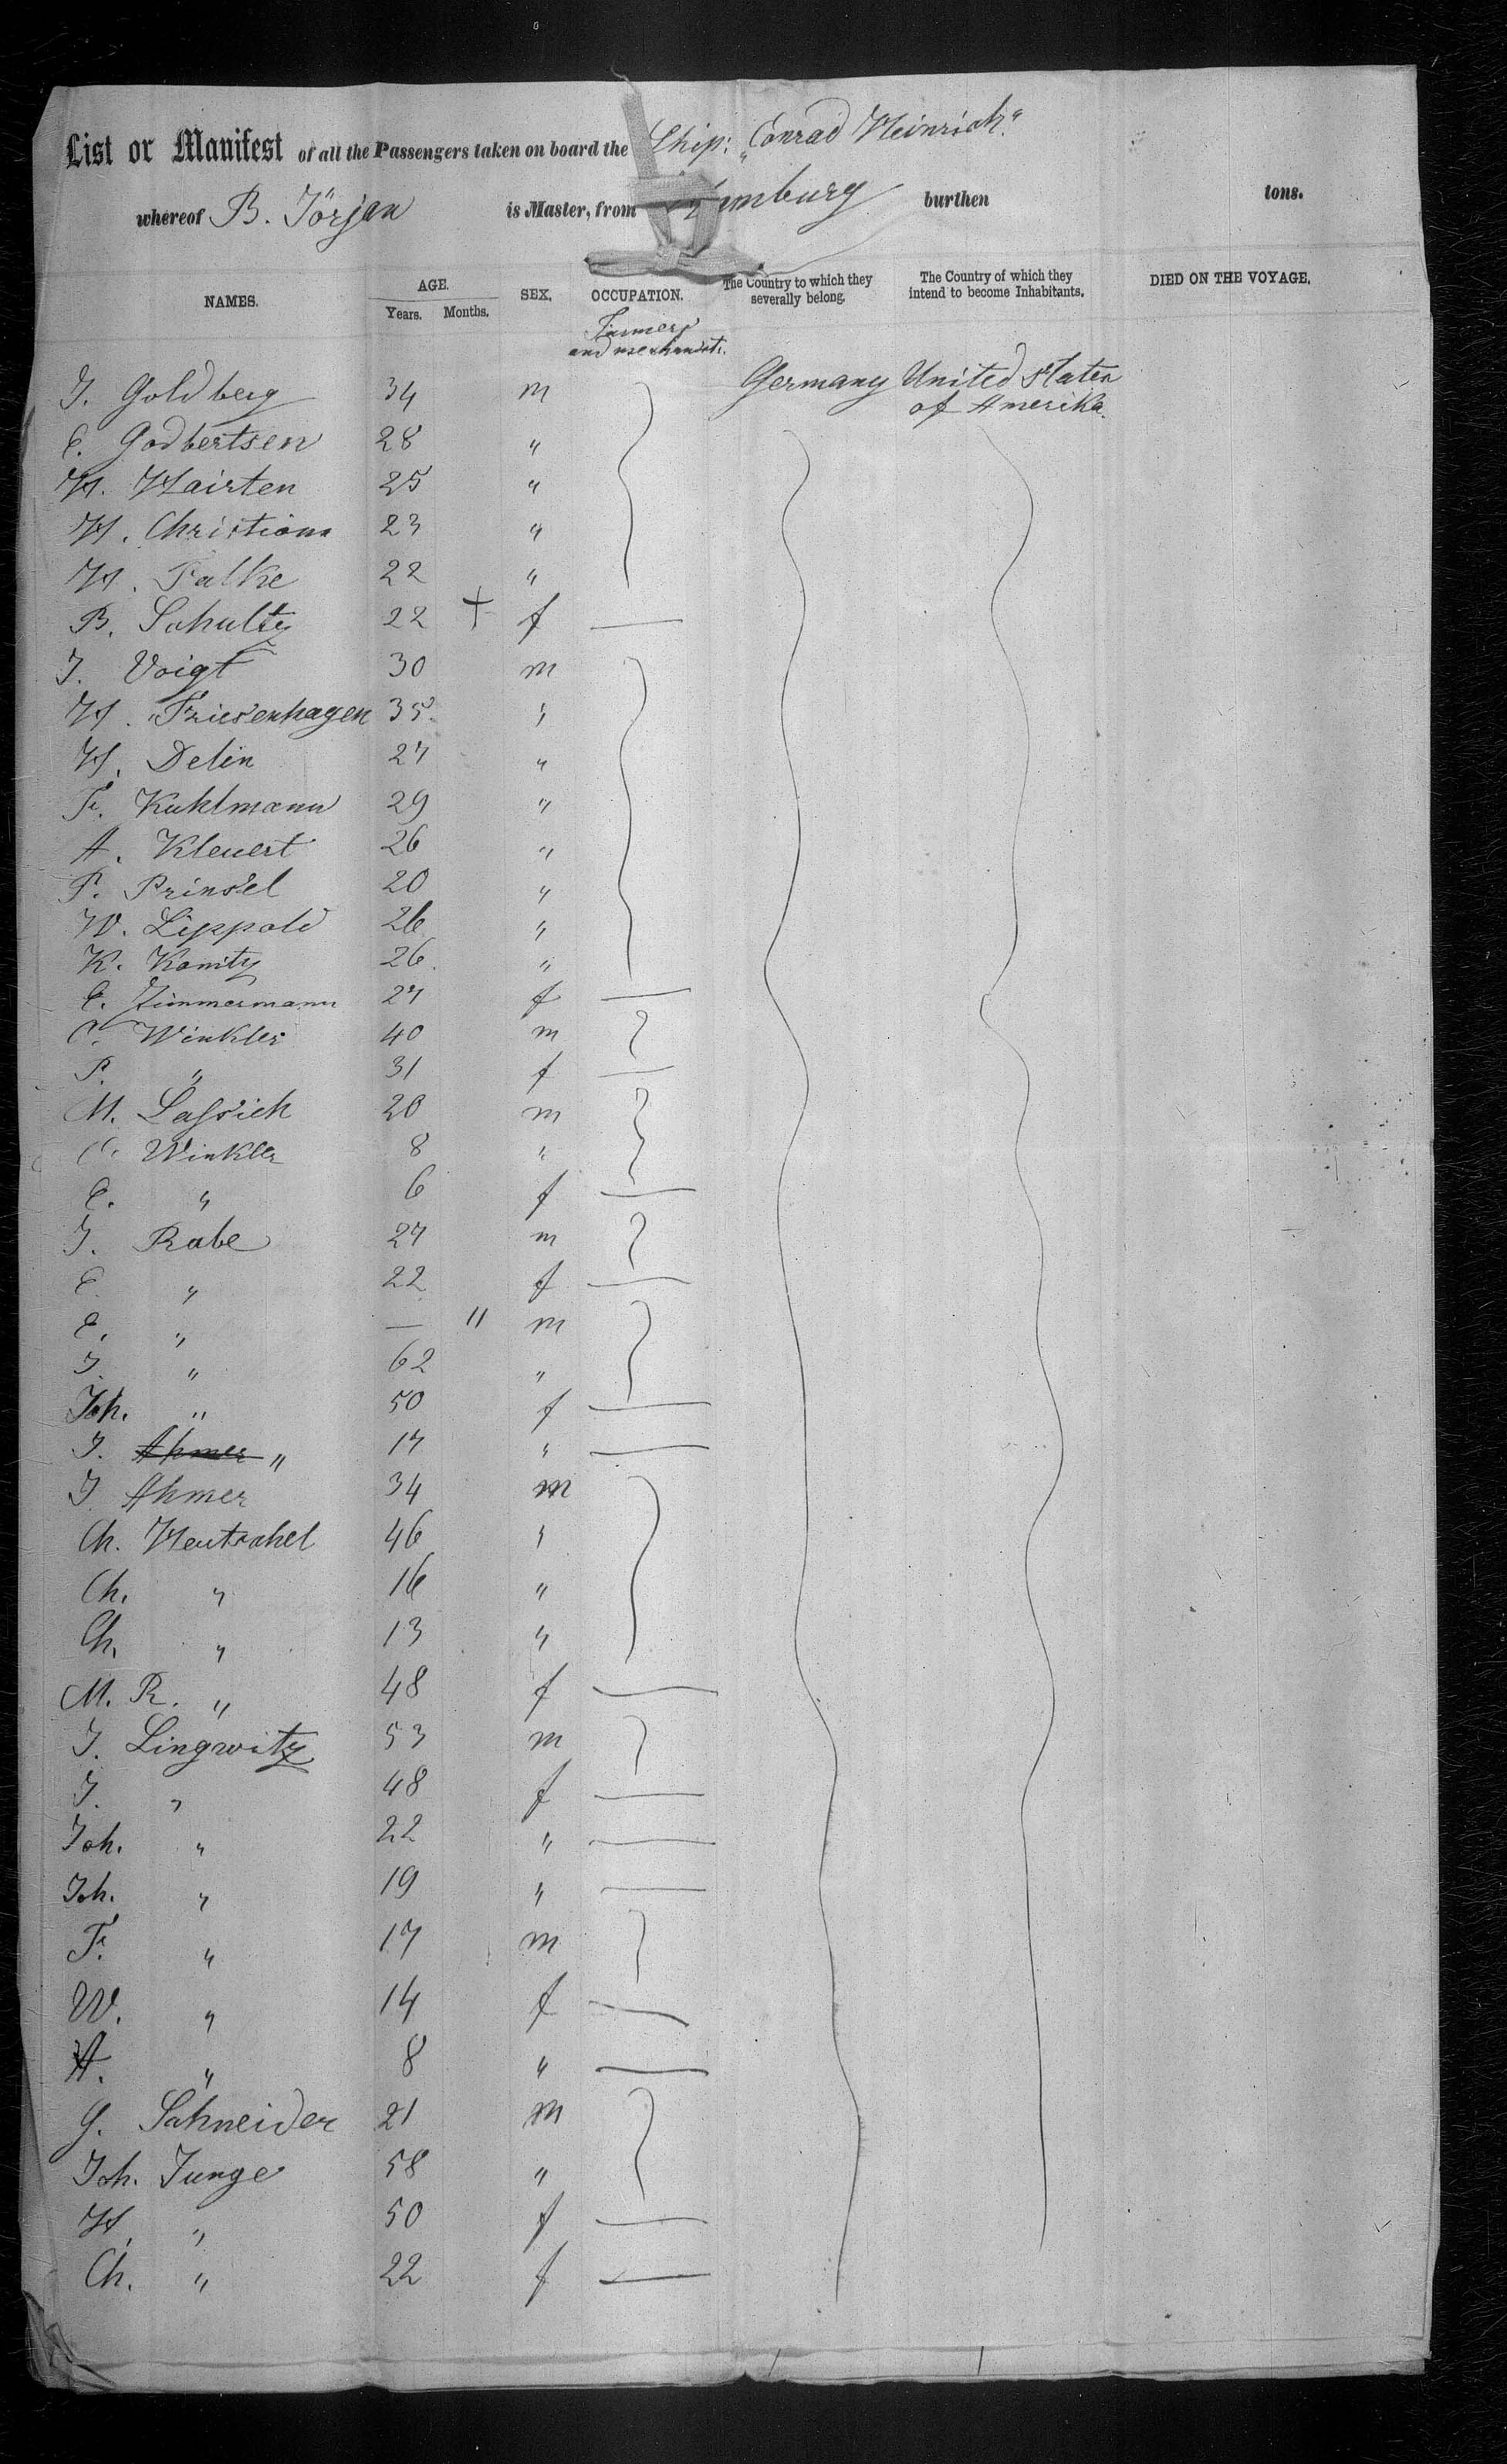 List or Manifest of all the Passengers taken on board the Ship: „Conrad Heinrich"
whereof B. Jörjan is Master, from Hamburg burthen tons.
NAMES. AGE. Years. Months. SEX. OCCUPATION. The Country to which they severally belong. The Country of which they intend to become Inhabitants. DIED ON THE VOYAGE.
Farmers
and merchants.
J. Goldberg 34 m Germany United States
of Amerika.
C. Godbertsen 28 "
H. Hairten 25 "
H. Christians 23 "
H. Falke 22 "
B. Schultz 22 + f —
J. Voigt 30 m
H. Friesenhagen 35 "
H. Delin 27 "
Fr. Kuhlmann 29 "
A. Kleuert 26 "
P. Prinsel 20 "
W. Lippold 26 "
K. Konitz 26 "
C. Zimmermann 27 f —
C. Winkler 40 m
P. " 31 f —
M. Lassich 20 m
C. Winkler 8 "
C. " 6 f —
J. Rabe 27 m
C. " 22 f —
C. " — 11 m
J. " 62 "
Joh. " 50 f —
J. Ahmer " 17 " —
J. Ahmer 34 m
Ch. Hentschel 46 "
Ch. " 16 "
Ch. " 13 "
M. R. " 48 f —
J. Lingwitz 53 m
J. " 48 f —
Joh. " 22 " —
Joh. " 19 " —
Fr. " 17 m
W. " 14 f —
A. " 8 " —
G. Schneider 21 m
Joh. Junge 58 "
H. " 50 f —
Ch. " 22 f —